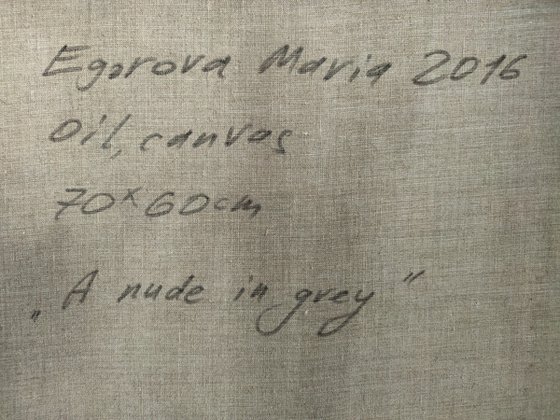 Egorova Maria 2016
Oil, canvas
70x60cm
„A nude in grey"